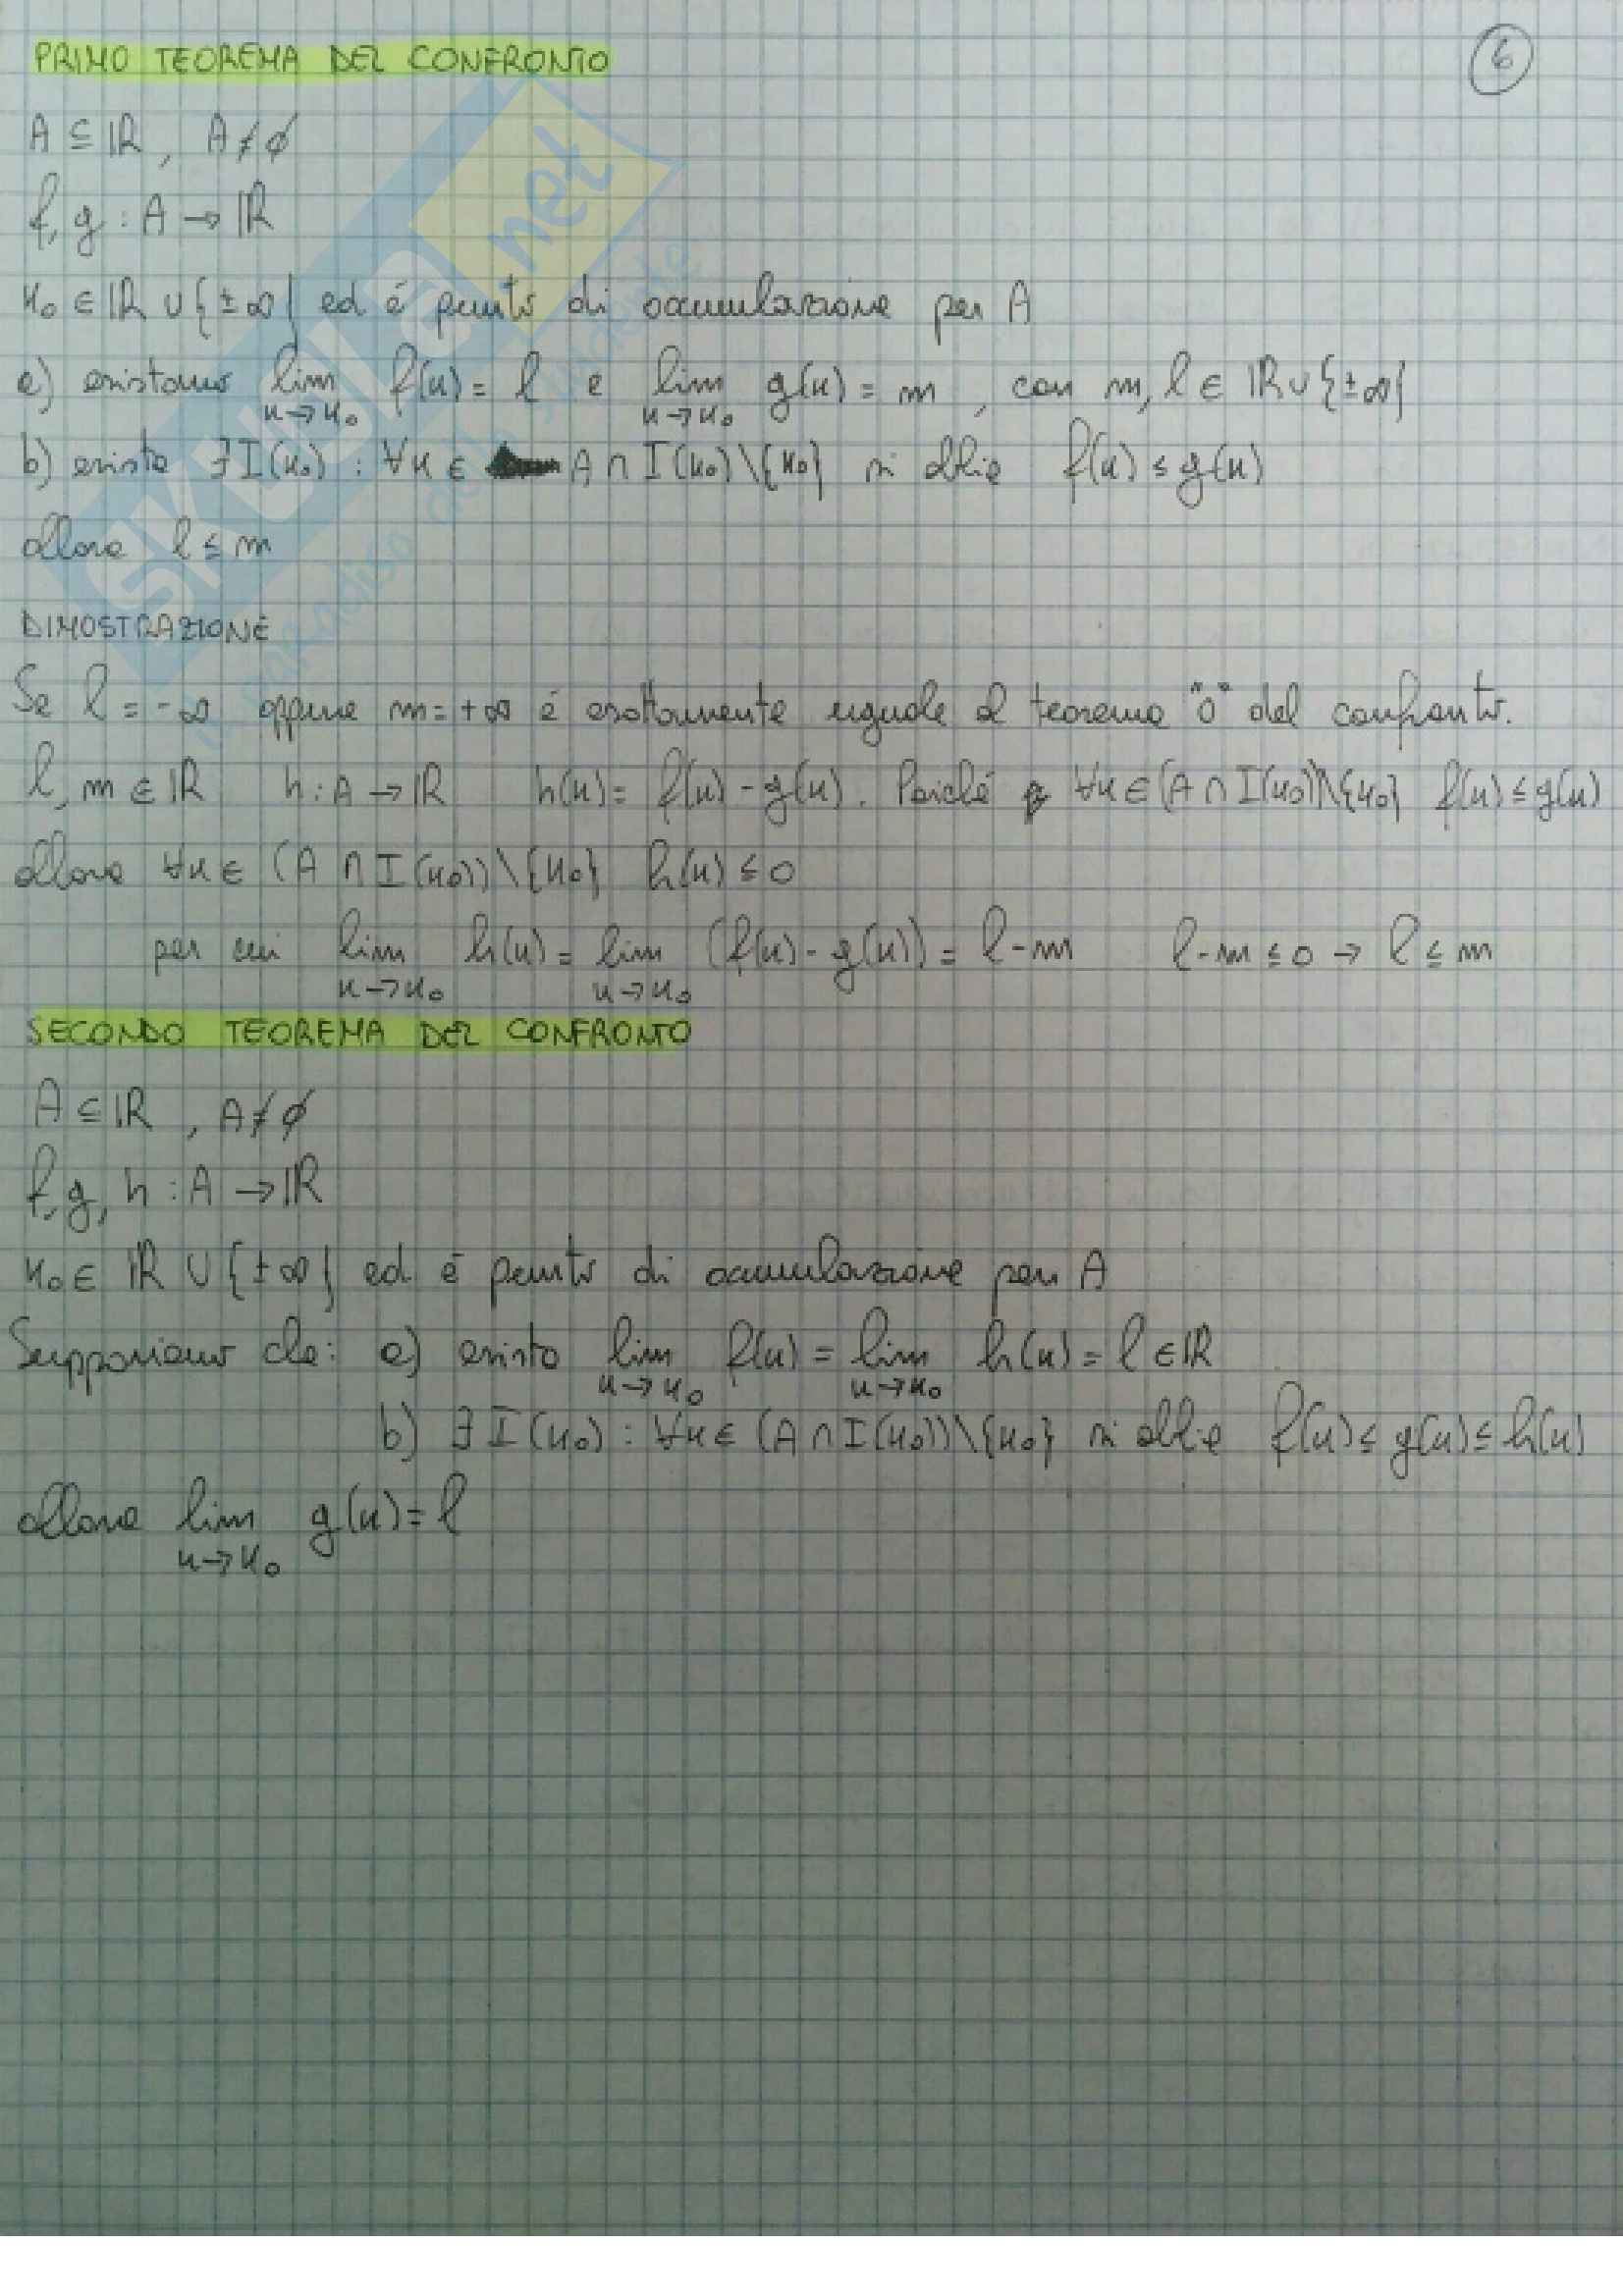 PRIMO TEOREMA DEL CONFRONTO
6
A ⊆ ℝ, A ≠ ∅
f, g : A → ℝ
x₀ ∈ ℝ ∪ {±∞} ed é punto di accumulazione per A
a) esistano lim x→x₀ f(x) = l e lim x→x₀ g(x) = m, con m, l ∈ ℝ ∪ {±∞}
b) esiste ∃ I(x₀) : ∀x ∈ A ∩ I(x₀) \ {x₀} si abbia f(x) ≤ g(x)
allora l ≤ m
DIMOSTRAZIONE
Se l = -∞ oppure m = +∞ é esattamente uguale al teorema "0" del confronto.
l, m ∈ ℝ h : A → ℝ h(x) = f(x) - g(x). Poiché ∀x ∈ (A ∩ I(x₀)) \ {x₀} f(x) ≤ g(x)
allora ∀x ∈ (A ∩ I(x₀)) \ {x₀} h(x) ≤ 0
per cui lim x→x₀ h(x) = lim x→x₀ (f(x) - g(x)) = l - m l - m ≤ 0 → l ≤ m
SECONDO TEOREMA DEL CONFRONTO
A ⊆ ℝ, A ≠ ∅
f, g, h : A → ℝ
x₀ ∈ ℝ ∪ {±∞} ed é punto di accumulazione per A
Supponiamo che: a) esista lim x→x₀ f(x) = lim x→x₀ h(x) = l ∈ ℝ
b) ∃ I(x₀) : ∀x ∈ (A ∩ I(x₀)) \ {x₀} si abbia f(x) ≤ g(x) ≤ h(x)
allora lim x→x₀ g(x) = l
SKUOLA.net
il paradiso dello studente